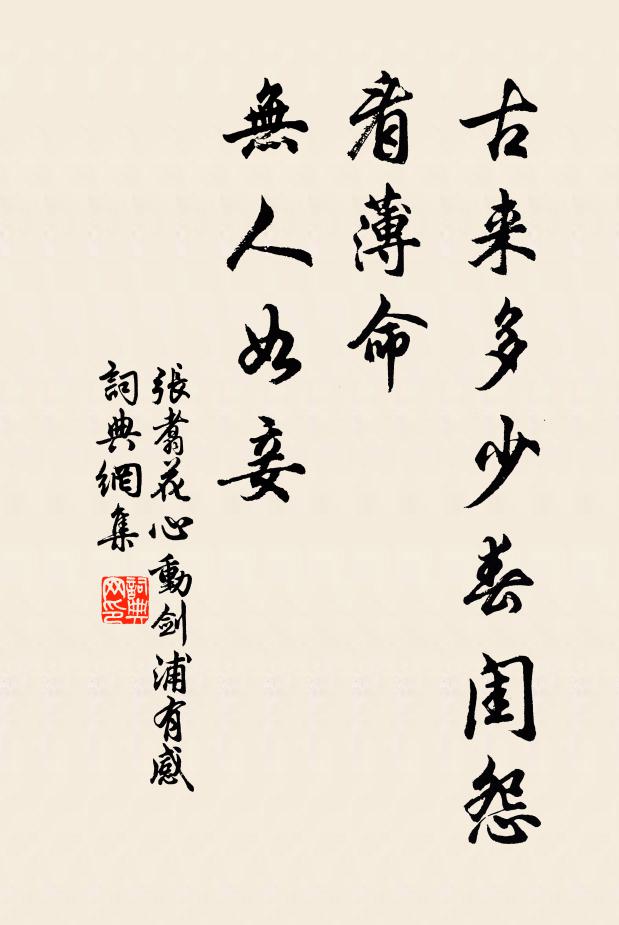 古来多少春闺怨
看薄命
無人如妾
張翥花心動剑浦有感
詞典網集
詞典
网印